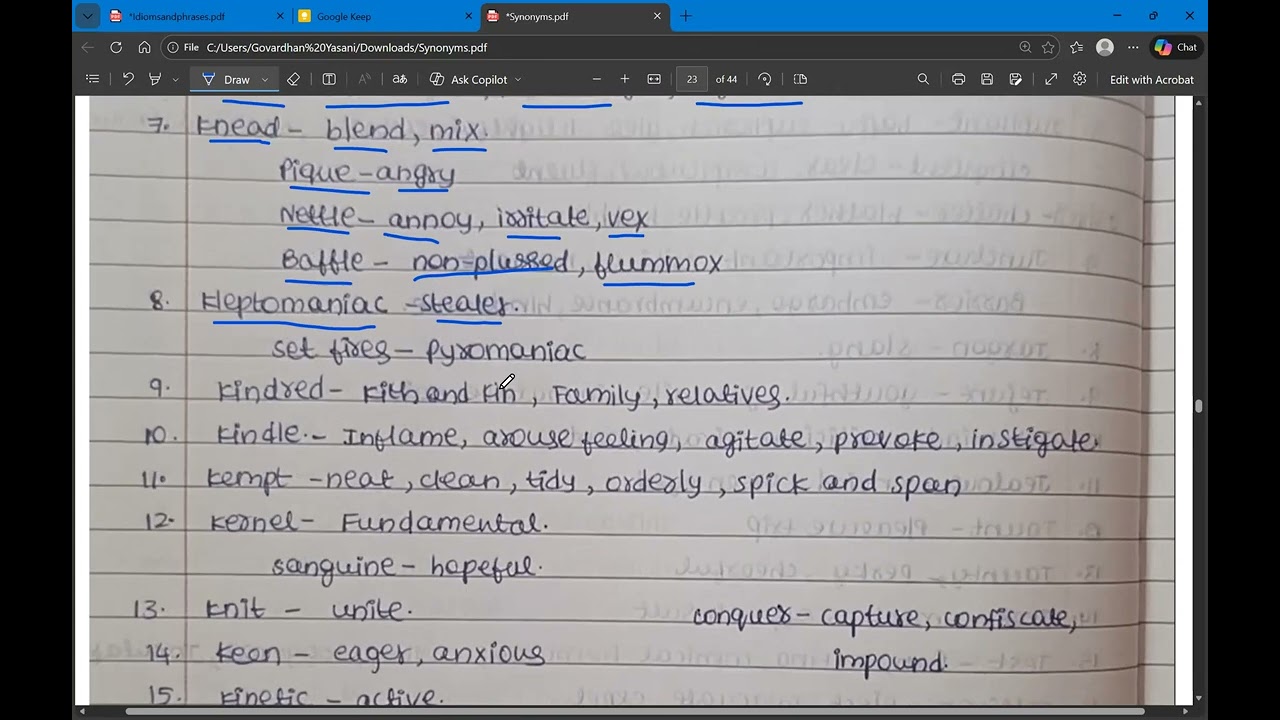 *Idiomsandphrases.pdf
Google Keep
*Synonyms.pdf
File C:/Users/Govardhan%20Yasani/Downloads/Synonyms.pdf
Chat
Draw
Ask Copilot
23 of 44
Edit with Acrobat
7. Knead - blend, mix.
Pique - angry
Nettle - annoy, irritate, vex
Baffle - non-plussed, flummox
8. Kleptomaniac - stealer.
set fires - pyromaniac
9. Kindred - Kith and Kin, Family, relatives.
10. Kindle. - Inflame, arouse feeling, agitate, provoke, instigate.
11. Kempt - neat, clean, tidy, orderly, spick and span
12. Kernel - Fundamental.
sanguine - hopeful.
13. Knit - unite. conquer - capture, confiscate,
impound.
14. Keen - eager, anxious
15. Kinetic - active.